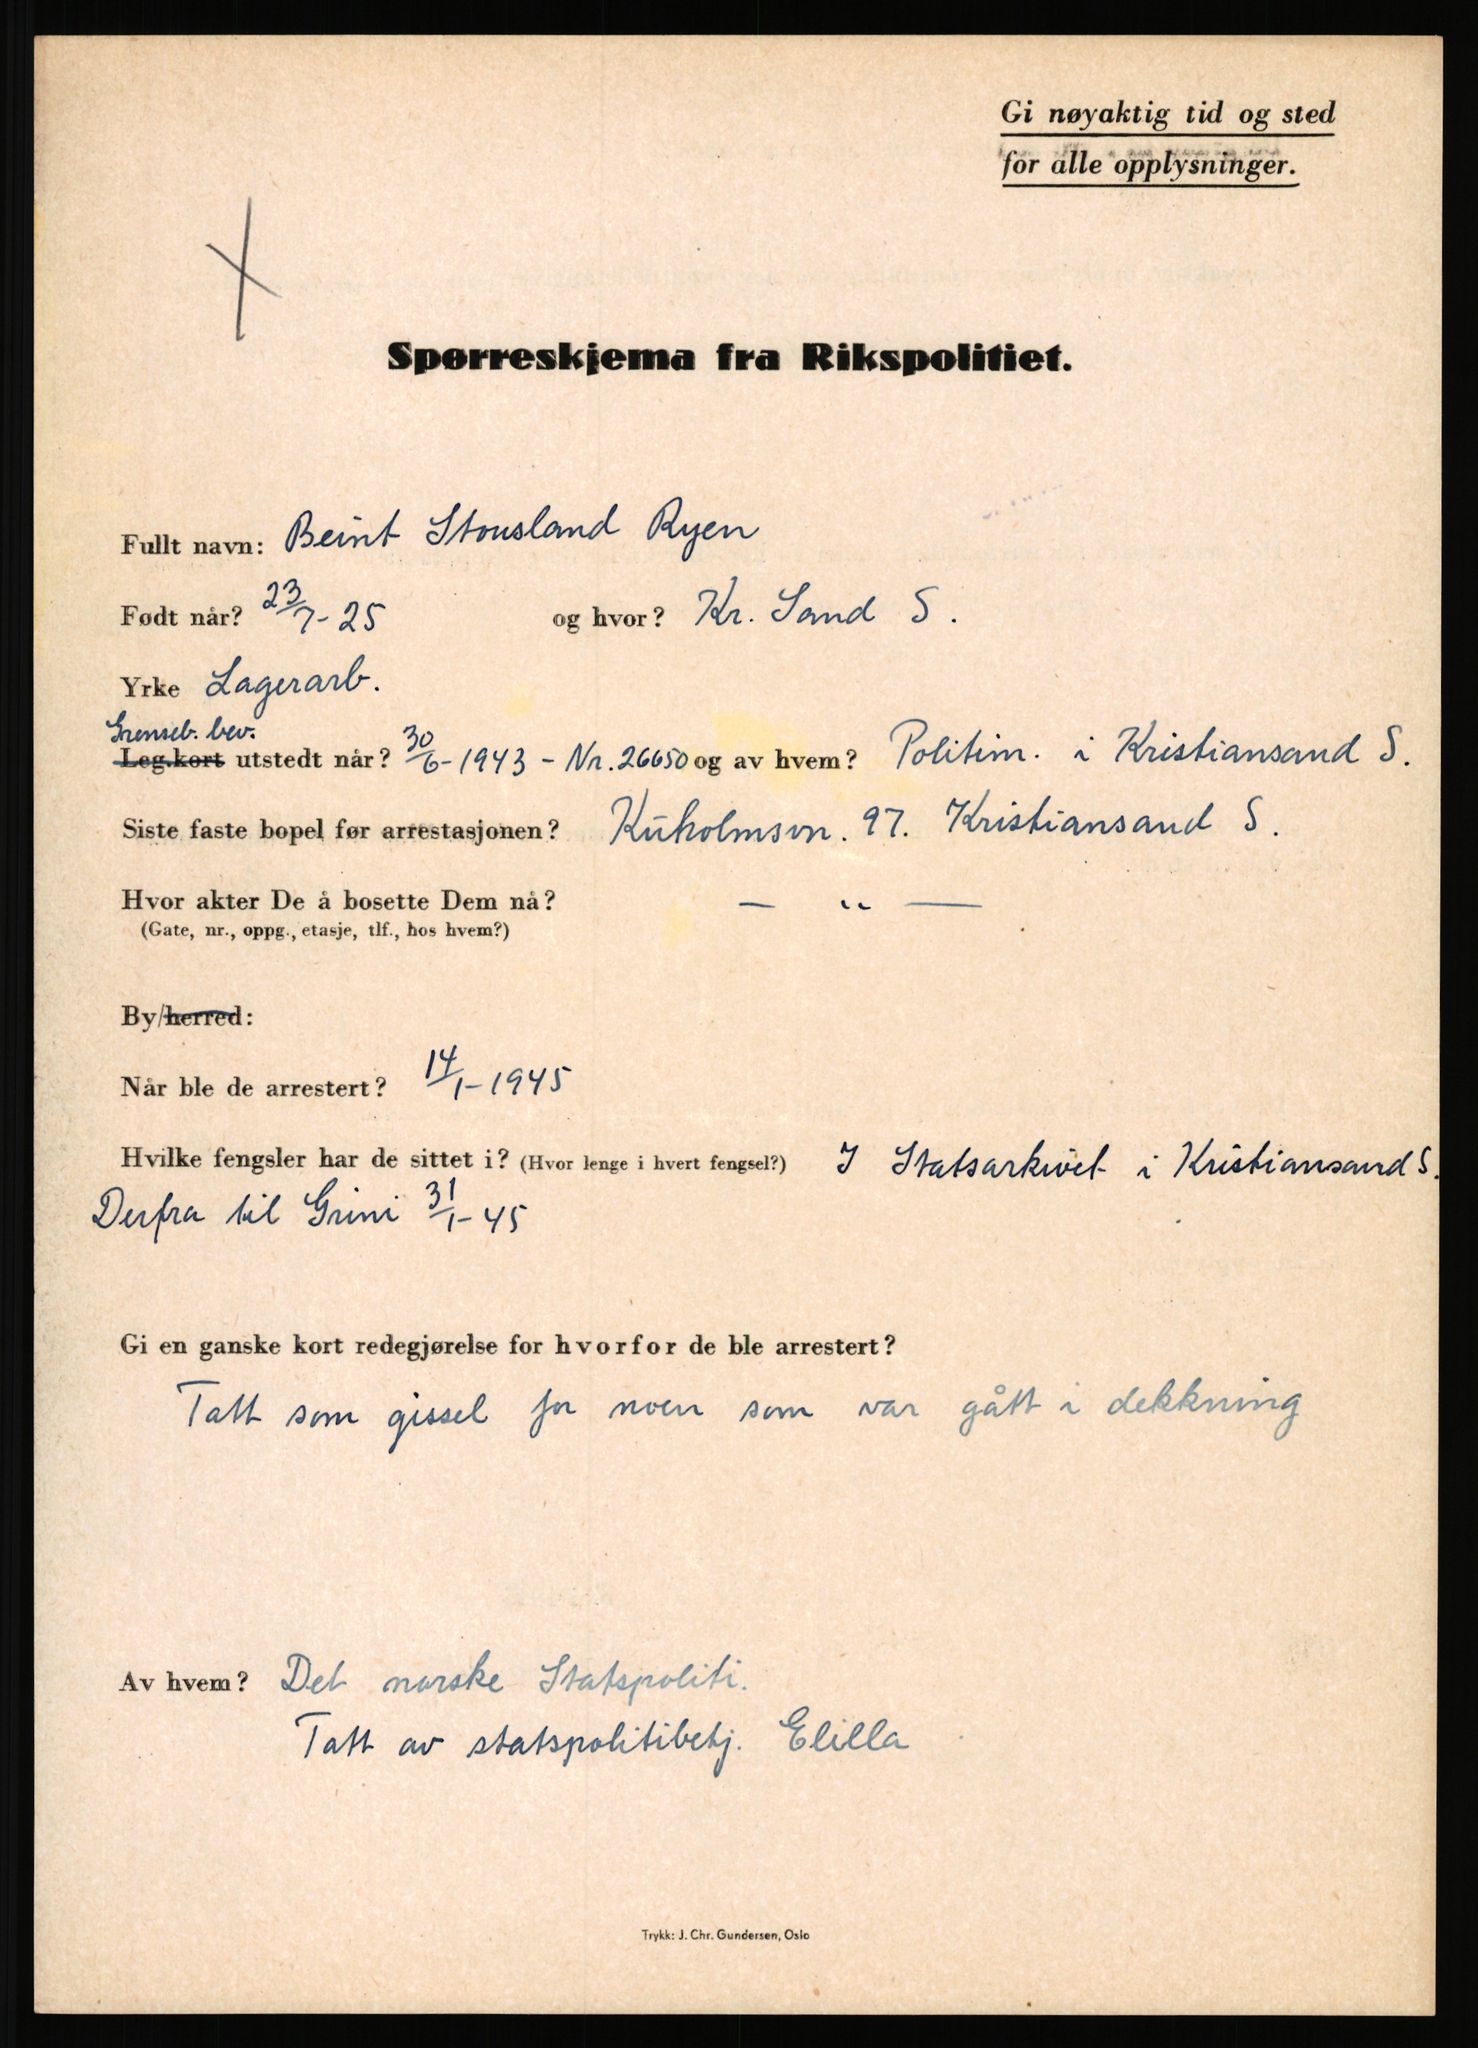 Gi nøyaktig tid og sted
for alle opplysninger.
Spørreskjema fra Rikspolitiet.
Fullt navn: Beint Stousland Ryen
Født når? 23/7-25 og hvor? Kr. Sand S.
Yrke Lagerarb.
Grenseb. bev.
Leg.kort utstedt når? 30/6-1943 - Nr. 26650 og av hvem? Politim. i Kristiansand S.
Siste faste bopel før arrestasjonen? Kuholmsvn. 97. Kristiansand S.
Hvor akter De å bosette Dem nå? — " —
(Gate, nr., oppg., etasje, tlf., hos hvem?)
By/herred:
Når ble de arrestert? 14/1-1945
Hvilke fengsler har de sittet i? (Hvor lenge i hvert fengsel?) I Statsarkivet i Kristiansand S.
Derfra til Grini 31/1-45
Gi en ganske kort redegjørelse for hvorfor de ble arrestert?
Tatt som gissel for noen som var gått i dekkning
Av hvem? Det norske Statspoliti.
Tatt av statspolitibetj. Elilla
Trykk: J. Chr. Gundersen, Oslo